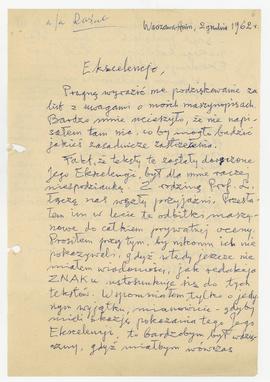 a/a Różne
Warszawa-Anin, 2 grudnia 1962 r.
Ekscelencjo,
Pragnę wyrazić me podziękowanie za
list z uwagami o moich maszynopisach.
Bardzo mnie ucieszyło, że nie napi-
sałem tam nic, co by mogło budzić
jakieś zasadnicze zastrzeżenia.
Fakt, że teksty te zostały doręczone
Jego Ekscelencji, był dla mnie raczej
niespodzianką. Z rodziną Prof. L.
łączą nas węzły przyjaźni. Przesła-
łem im w lecie te odbitki maszy-
nowe do całkiem prywatnej oceny.
Prosiłem przy tym, by nikomu ich nie
pokazywali, gdyż wtedy jeszcze nie
miałem wiadomości, jak redakcja
ZNAKu ustosunkuje się do tych
tekstów. Wspomniałem tylko o jedy-
nym wyjątku, mianowicie - gdyby
mieli okazję pokazania tego Jego
Ekscelencji, to bardzobym był wdzię-
czny, gdyż miałbym wówczas